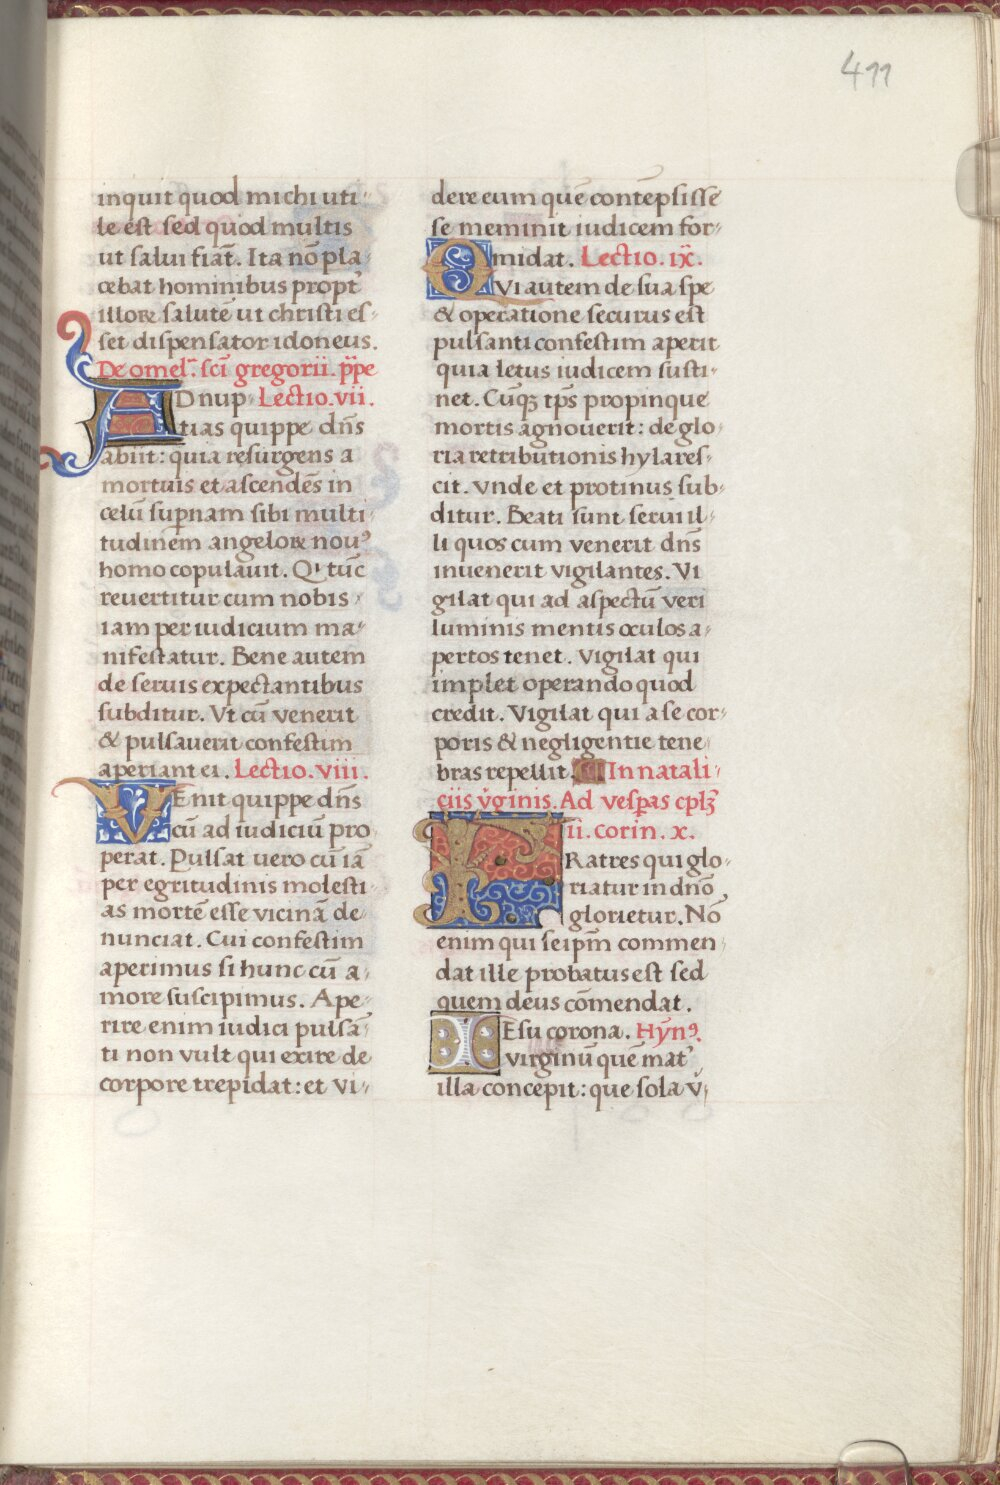 411
inquit quod michi uti-
le est sed quod multis
ut salui fiāt. Ita nō pla-
cebat hominibus propt'
illoꝝ salutē ut christi es-
set dispensator idoneus.
De omel. sci gregorii. ppe
ADnup- Lectio. vii.
tias quippe dn̄s
abiit: quia resurgens a
mortuis et ascendēs in
celū supnam sibi multi-
tudinem angeloꝝ nou9
homo copulauit. Qi tūc
reuertitur cum nobis
iam per iudicium ma-
nifestatur. Bene autem
de seruis expectantibus
subditur. Vt cū venerit
& pulsauerit confestim
aperiant ei. Lectio. viii.
VEnit quippe dn̄s
cū ad iudiciū pro-
perat. Pulsat uero cū iā
per egritudinis molesti-
as mortē esse vicinā de-
nunciat. Cui confestim
aperimus si hunc cū a-
more suscipimus. Ape-
rire enim iudici pulsā-
ti non vult qui exire de
corpore trepidat: et vi-
dere eum quē contēpsisse
se meminit iudicem for-
midat. Lectio. ix.
QVi autem de sua spe
& operatione securus est
pulsanti confestim aperit
quia letus iudicem susti-
net. Cūqꝫ tp̄s propinque
mortis agnouerit: de glo-
ria retributionis hylares-
cit. vnde et protinus sub-
ditur. Beati sunt serui il-
li quos cum venerit dn̄s
inuenerit vigilantes. Vi
gilat qui ad aspectū veri
luminis mentis oculos a-
pertos tenet. Vigilat qui
implet operando quod
credit. Vigilat qui a se cor-
poris & negligentie tene-
bras repellit. In natali-
ciis v̄ginis. Ad vesp̄as cplꝫ
ii. Corin. x.
FRatres qui glo-
riatur in dn̄o
glorietur. Nō
enim qui seipm̄ commen-
dat ille probatus est sed
quem deus cōmendat.
IEsu corona. Hyn9.
virginū quē mat'
illa concepit: que sola v̄-